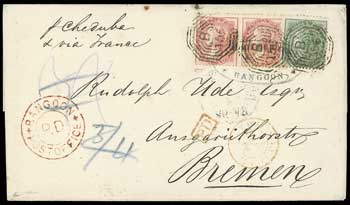 p Cheduba
& via France
RANGOON
Rudolph Ude Esqr.
RANGOON
PD
POST OFFICE
PD
3/4
Bremen